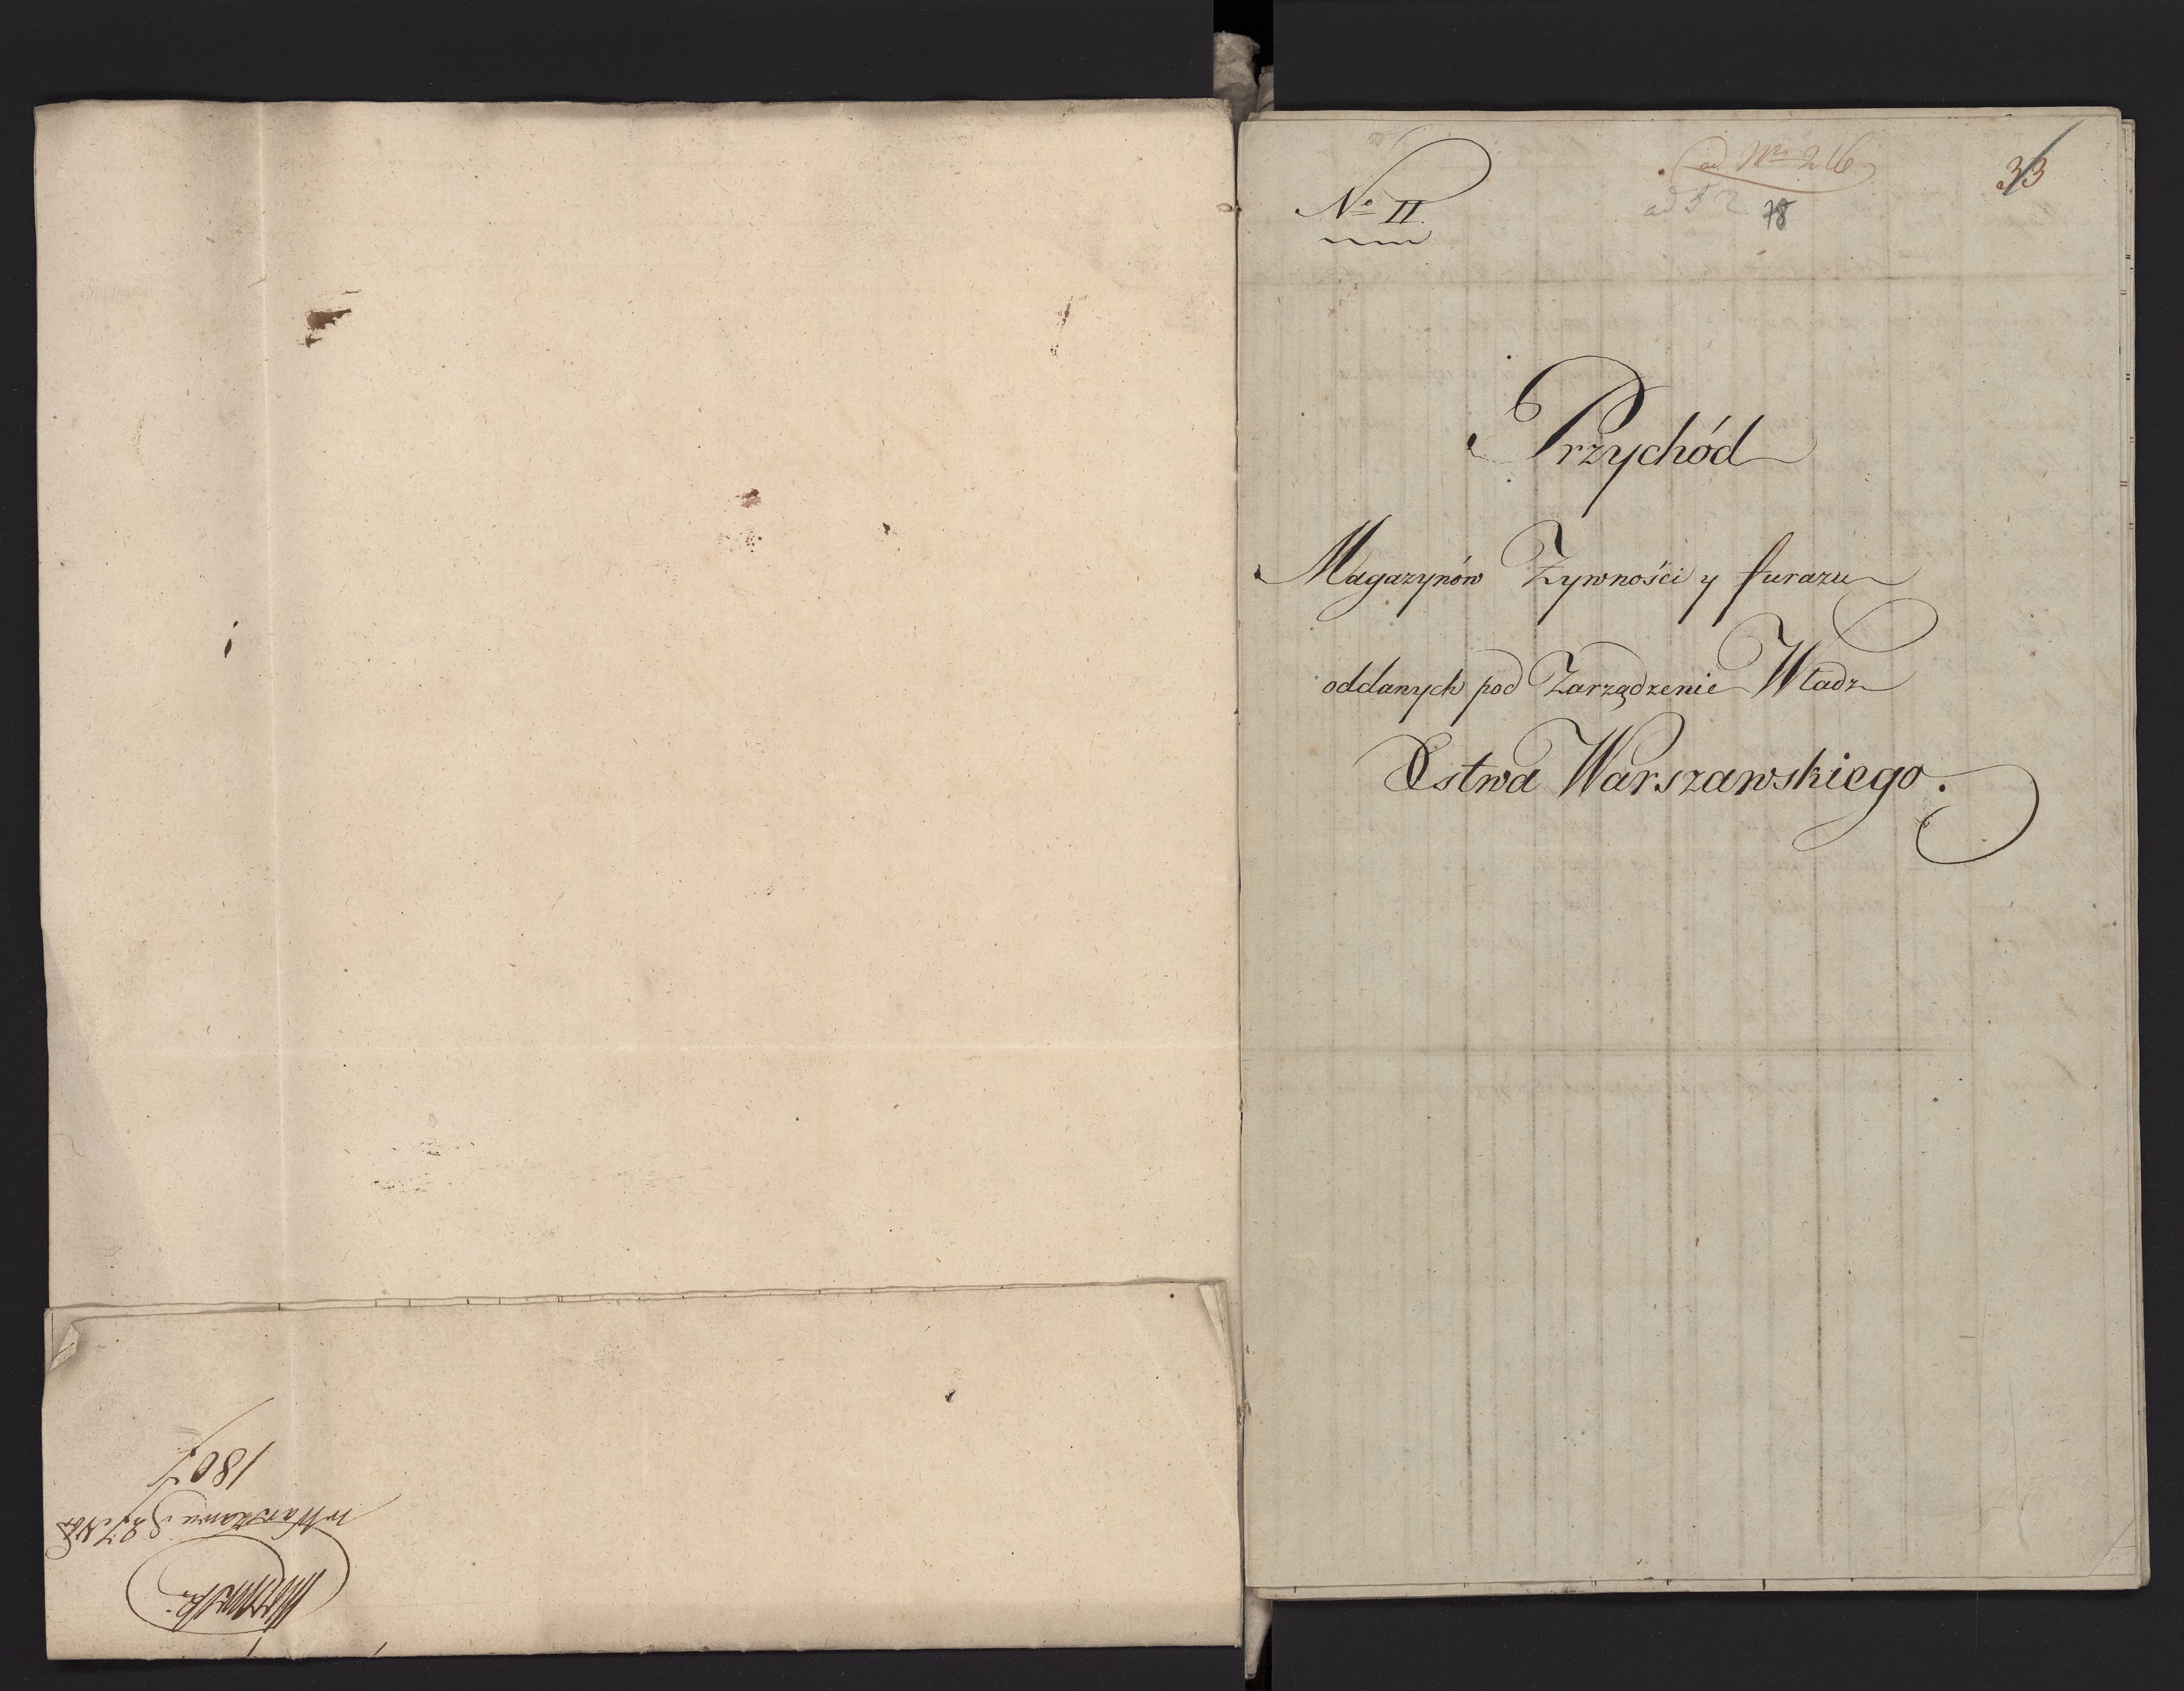 1807
w Warszawie d 27
No II.
ad Nro 216.
33
ad 52
78
Przychód
Magazynów Zywności y furazu
oddanych pod Zarządzenie Władz
Xstwa Warszawskiego.